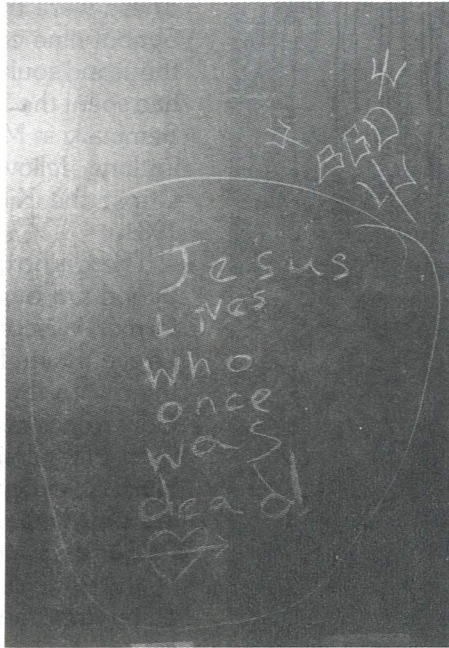 BGD
Jesus
Lives
who
once
was
dead